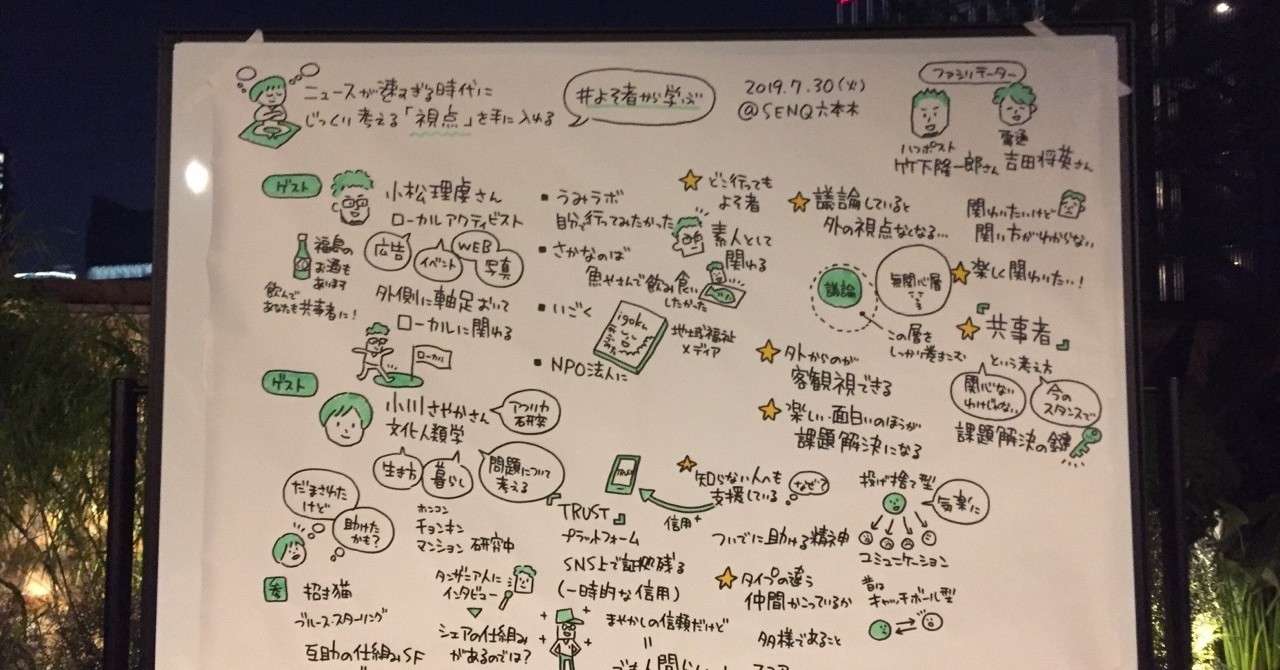 ニュースが速すぎる時代に
じっくり考える「視点」を手に入れる
#よそ者から学ぶ
2019.7.30(火)
@SENQ六本木
ファシリテーター
ハフポスト
竹下隆一郎さん
電通
吉田将英さん
ゲスト
小松理虔さん
ローカルアクティビスト
広告
イベント
WEB
写真
福島の
お酒も
あります
飲んで
あなたも共事者に!
外側に軸足おいて
ローカルに関わる
ローカル
うみラボ
自分で行ってみたかった
さかなのば
魚やさんで飲み食い
したかった
いごく
igoku
地域福祉
メディア
NPO法人に
どこ行っても
よそ者
素人として
関わる
議論していると
外の視点なくなる…
議論
無関心層
ここ
この層を
しっかり巻きこむ
外からのが
客観視できる
楽しい面白いのほうが
課題解決になる
関わりたいけど
関い方がわからない
楽しく関わりたい!
『共事者』
という考え方
関心ない
わけじゃない
今の
スタンスで
課題解決の鍵
ゲスト
小川さやかさん
文化人類学
アフリカ
研究
生き方
暮らし
問題について
考える
だまされた
けど
助けた
かも?
ホンコン
チョンキン
マンション研究中
『TRUST』
プラットフォーム
SNS上で証拠残る
(一時的な信用)
信用+
知らない人へも
支援している
なぜ?
ついでに助ける精神
タイプの違う
仲間かっているか
多様であること
投げ捨て型
気楽に
コミュニケーション
昔は
キャッチボール型
参
招き猫
ブルース・スターリング
互助の仕組みSF
タンザニア人に
インタビュー
シェアの仕組み
があるのでは?
まやかしの信頼だけど